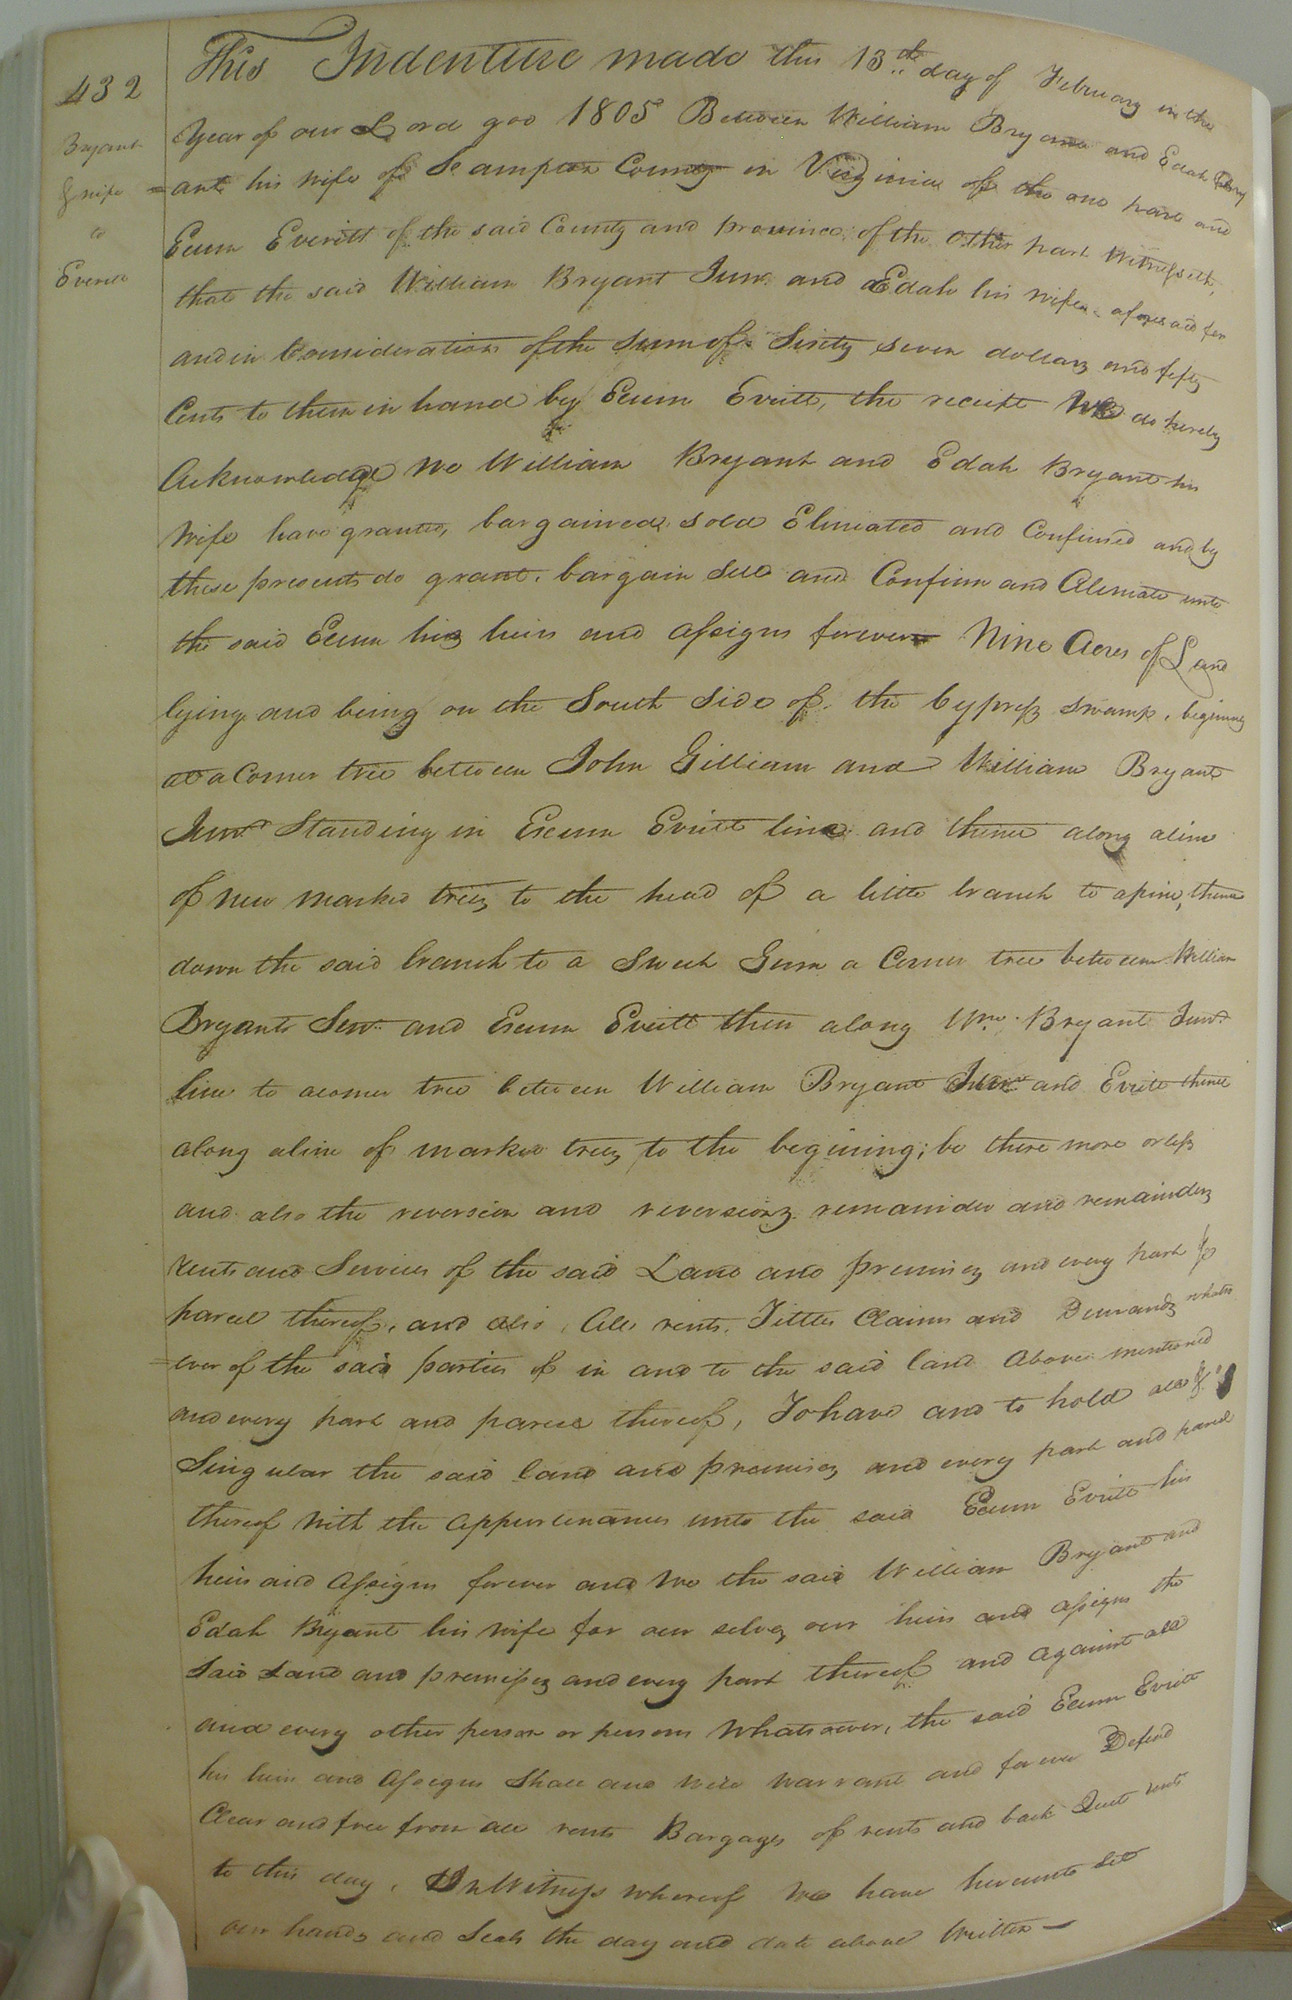 432
Bryant
& wife
to
Everitt
This Indenture made this 13th day of February in the
Year of our Lord god 1805 Between William Bryant and Edah Bry
=ant his wife of So ampton County in Virginia of the one part and
Exum Everitt of the said County and province, of the Other part Witnesseth,
that the said William Bryant Junr. and Edah his wife aforesaid for
and in Consideration of the Sum of Sixty seven dollars and fifty
Cents to them in hand by Exum Evritt, the receipt We do hereby
Acknowledge We William Bryant and Edah Bryant his
Wife have granted, bargained, sold Eliniated and Confirmed and by
these presents do grant, bargain Sell and Confirm and Aleniate unto
the said Exum his heirs and assigns forever Nine Acres of Land
lying and being on the South Side of the Cypress swamp, begining
at a Corner tree between John Gilliam and William Bryant
Junr. Standing in Exum Evritt line and thence along a line
of new marked trees to the head of a little branch to a pine, thence
down the said branch to a Sweet Gum a Corner tree between William
Bryants Senr. and Exum Evritt then along Wm. Bryant Junr.
line to a corner tree between William Bryant Junr. and Evritt thence
along a line of marked trees to the begining; be there more or less
and also the reversion and reversions remainder and remainders
rents and Services of the said Land and premises and every part &
parcel thereof, and also All rents, Tittles Claims and Demands whats
=ever of the said parties of in and to the said land Above mentioned
and every part and parcel thereof, To have and to hold all &
Singular the said land and premises and every part and parcel
thereof with the appurtenances unto the said Exum Evritt his
heirs and Assigns forever and We the said William Bryant and
Edah Bryant his wife for our selves our heirs and assigns the
Said Land and premises and every part thereof and against all
and every other person or persons Whatsoever, the said Exum Evritt
his heirs and Assigns Shall and Will warrant and forever Defend
Clear and free from all rents Bargages of rents and back Quit rents
to this day, In Witness whereof We have hereunto Set
our hands and Seals the day and date above Written